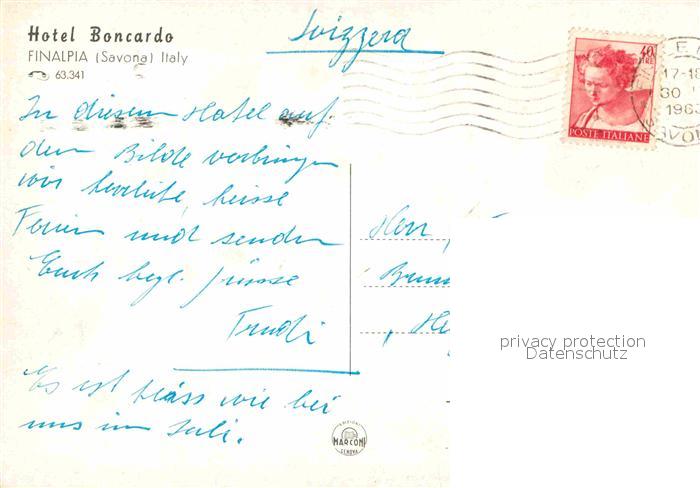 Hotel Boncardo
FINALPIA (Savona) Italy
63.341
Svizzera
40
LIRE
POSTE ITALIANE
17-18
30
196
In diesem Hotel auf
dem Bilde verbringen
wir herrliche, heisse
Ferien und senden
Euch herzl. Grüsse
Trudi
Es ist heiss wie bei
uns im Juli.
Herr
privacy protection
Datenschutz
EDIZIONI
MARCONI
GENOVA